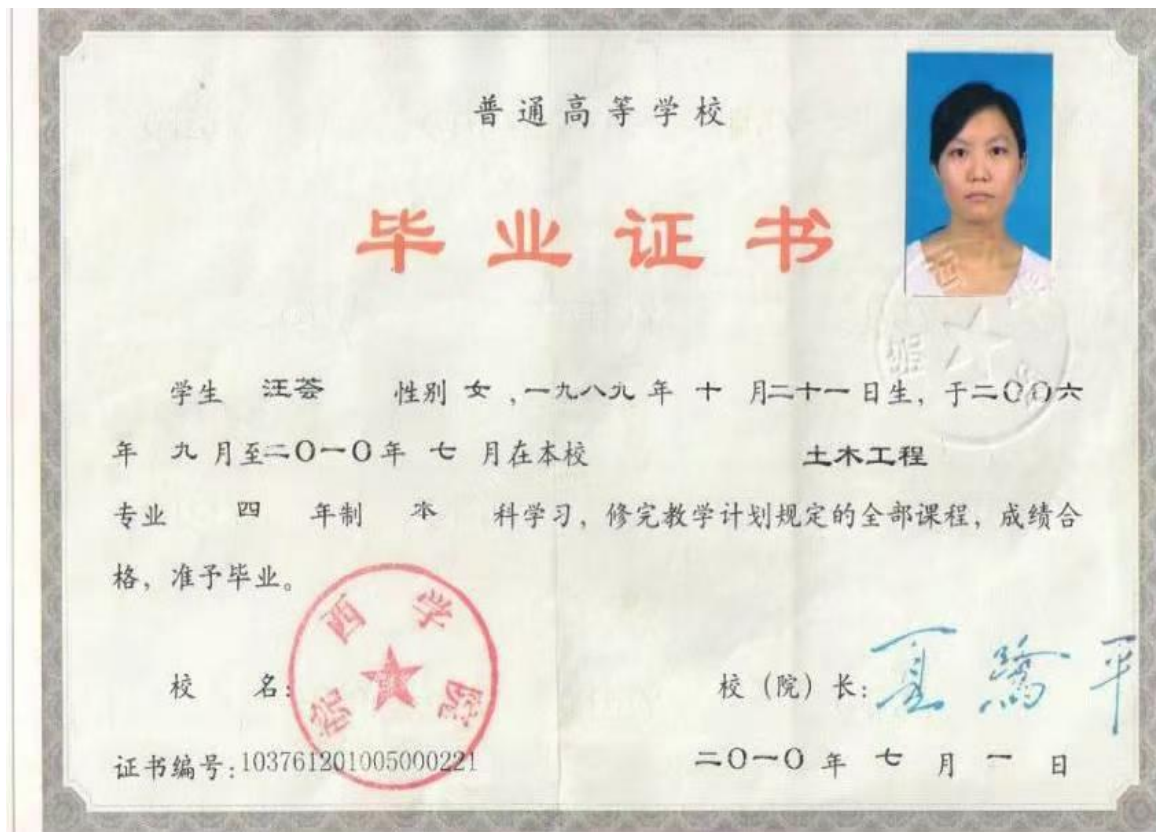 普通高等学校
毕业证书
学生 汪荟 性别 女，一九八九 年 十 月二十一日生，于二〇〇六
年 九 月至二〇一〇年 七 月在本校 土木工程
专业 四 年制 本 科学习，修完教学计划规定的全部课程，成绩合
格，准予毕业。
皖西学院
校 名： 校（院）长：
证书编号：103761201005000221 二〇一〇 年 七 月 一 日